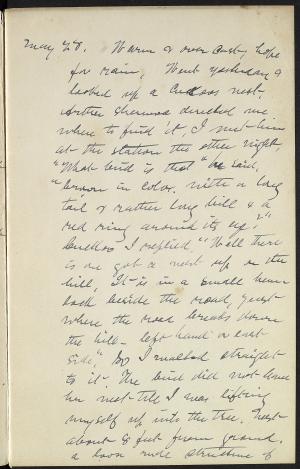 May 28. Warm & over cast, hope
for rain. Went yesterday &
looked up a Cuckoos nest.
Arther Sherwood directed me
where to find it, I met him
at the station the other night,
"What bird is that" he said,
"brown in color, with a long
tail & rather long bill & a
red ring around its eye?"
Cuckoo I replied "Well there
is one got a nest up on the
hill, It is in a small hem-
lock beside the road, just
where the road breaks down
the hill - left hand or east
side." So I walked straight
to it. The bird did not leave
her nest till I was lifting
myself up into the tree. Nest
about 8 feet from ground.
a loos rude structure of